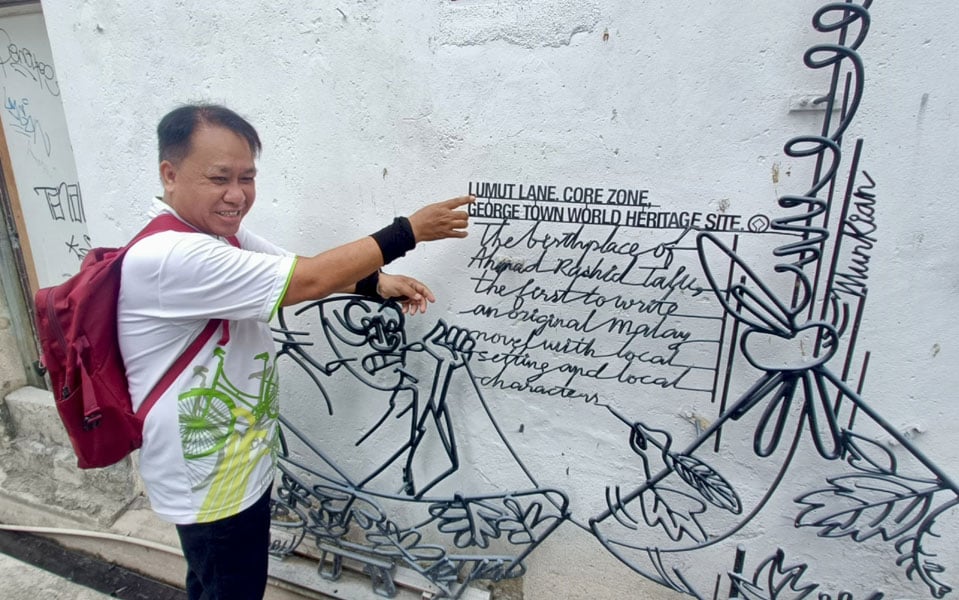 LUMUT LANE, CORE ZONE,
GEORGE TOWN WORLD HERITAGE SITE.
The birthplace of
Ahmad Rashid Talu,
the first to write
an original Malay
novel with local
setting and local
characters